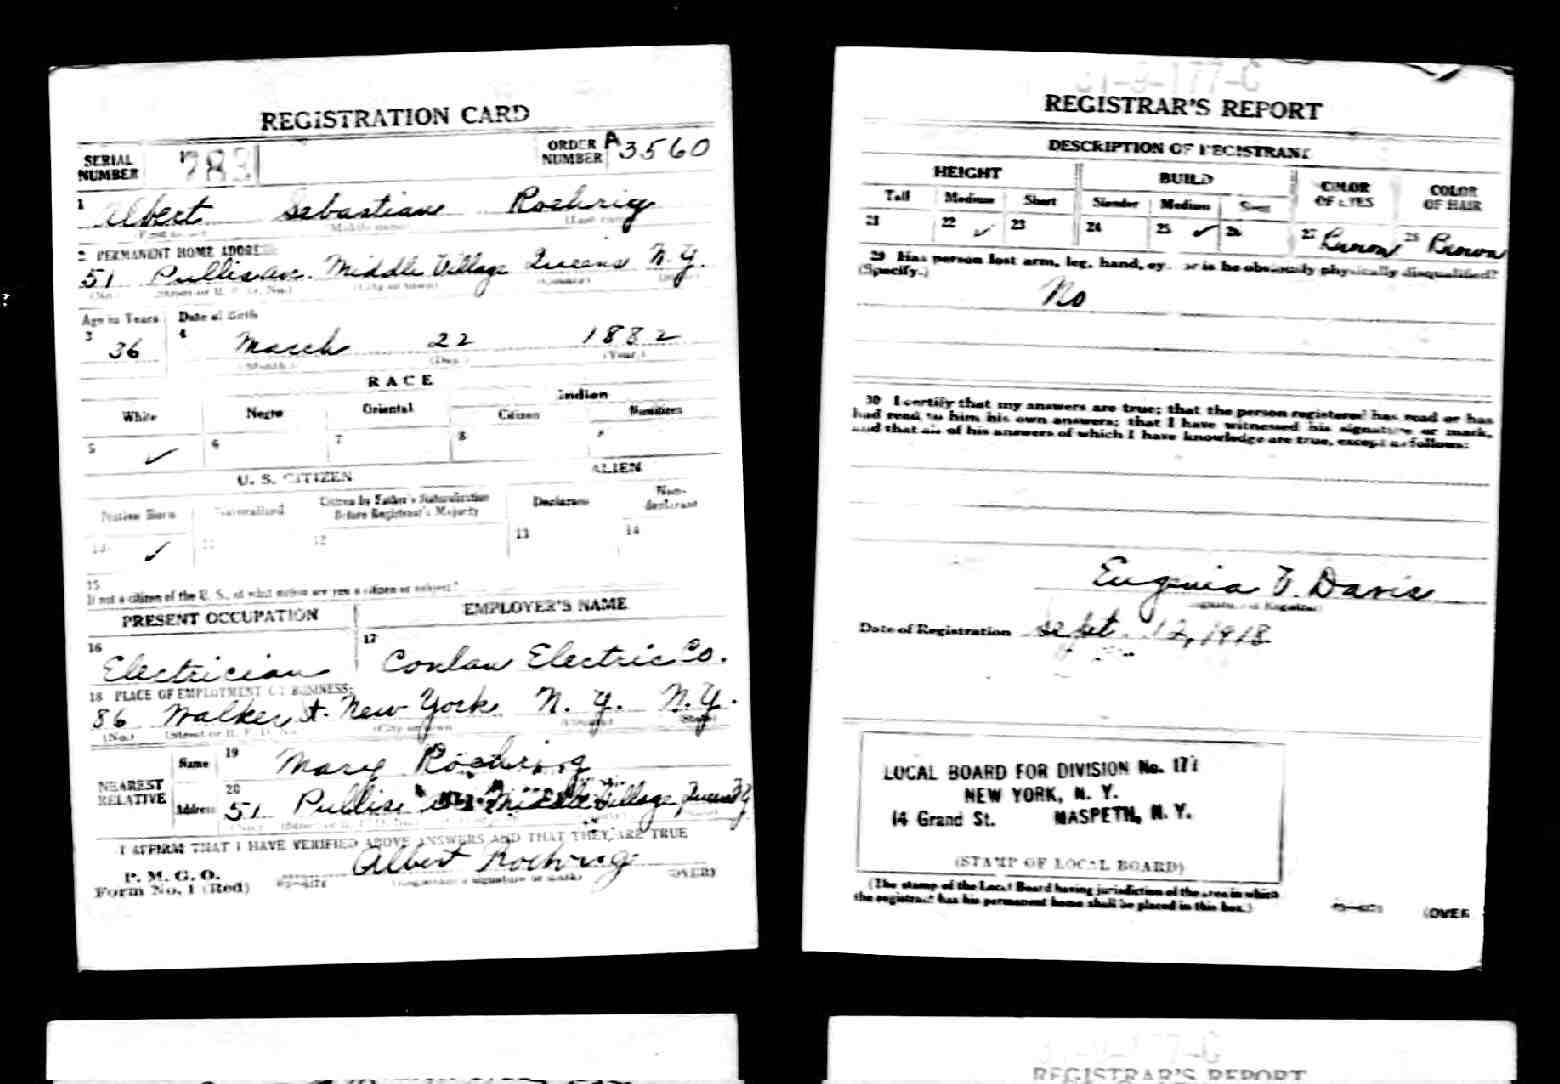 REGISTRATION CARD
SERIAL NUMBER 783 ORDER NUMBER A3560
1 Albert Sebastian Roehrig
(First name) (Middle name) (Last name)
2 PERMANENT HOME ADDRESS
51 Pullis av. Middle Village Queens N.Y.
(No.) (Street or R. F. D. No.) (City or town) (County) (State)
Age in Years Date of Birth
3 36 4 March 22 1882
(Month) (Day) (Year)
RACE
White Negro Oriental Indian
Citizen Noncitizen
5 ✓ 6 7 8 9
U. S. CITIZEN ALIEN
Native Born Naturalized Citizen by Father's Naturalization Before Registrant's Majority Declarant Non-declarant
10 ✓ 11 12 13 14
15
If not a citizen of the U. S., of what nation are you a citizen or subject?
PRESENT OCCUPATION EMPLOYER'S NAME
16 Electrician 17 Conlan Electric Co.
18 PLACE OF EMPLOYMENT OR BUSINESS:
86 Walker St. New York N.Y. N.Y.
(No.) (Street or R. F. D. No.) (City or town) (County) (State)
NEAREST RELATIVE Name 19 Mary Roehrig
Address 20 51 Pullis Middle Village, Queens N.Y.
I AFFIRM THAT I HAVE VERIFIED ABOVE ANSWERS AND THAT THEY ARE TRUE
P. M. G. O.
Form No. 1 (Red) Albert Roehrig
(Registrant's signature or mark) (OVER)
31-9-177-C
REGISTRAR'S REPORT
DESCRIPTION OF REGISTRANT
HEIGHT BUILD COLOR OF EYES COLOR OF HAIR
Tall Medium Short Slender Medium Stout
21 22 ✓ 23 24 25 ✓ 26 27 Brown 28 Brown
29 Has person lost arm, leg, hand, eye, or is he obviously physically disqualified?
(Specify.)
No
30 I certify that my answers are true; that the person registered has read or has
had read to him his own answers; that I have witnessed his signature or mark,
and that all of his answers of which I have knowledge are true, except as follows:
Eugenia V. Davis
(Signature of Registrar)
Date of Registration Sept. 12, 1918
LOCAL BOARD FOR DIVISION No. 177
NEW YORK, N. Y.
14 Grand St. MASPETH, N. Y.
(STAMP OF LOCAL BOARD)
(The stamp of the Local Board having jurisdiction of the area in which
the registrant has his permanent home shall be placed in this box.)
(OVER
REGISTRAR'S REPORT